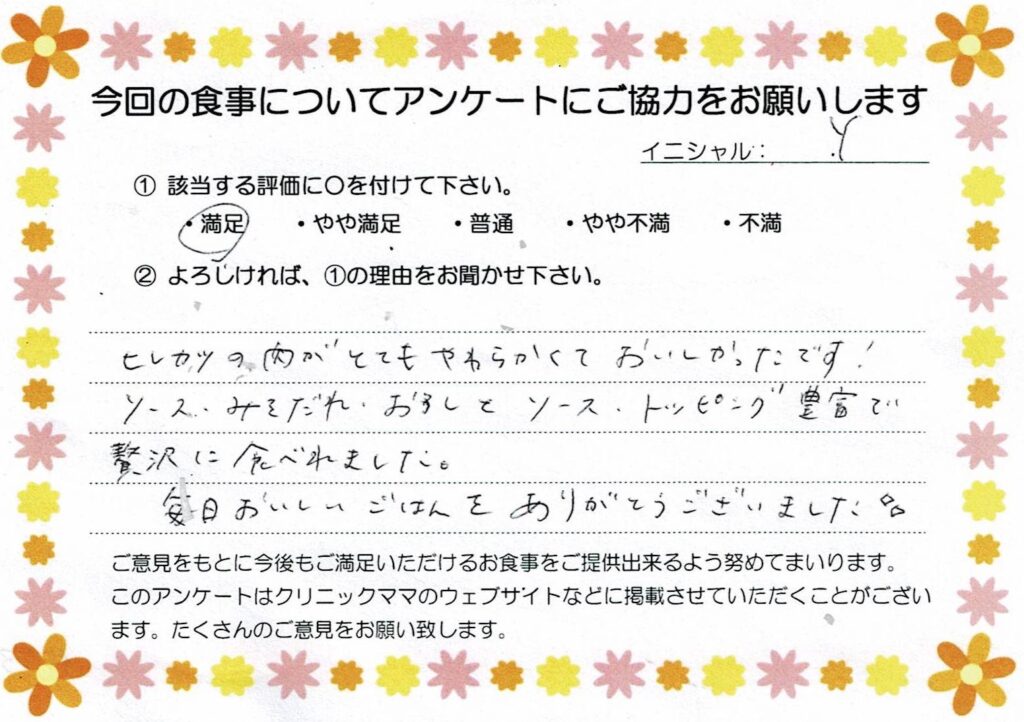 今回の食事についてアンケートにご協力をお願いします
イニシャル： Y
① 該当する評価に〇を付けて下さい。
・満足 ・やや満足 ・普通 ・やや不満 ・不満
② よろしければ、①の理由をお聞かせ下さい。
ヒレカツの肉がとてもやわらかくておいしかったです！
ソース・みそだれ・おろしとソース・トッピング豊富で
贅沢に食べれました。
毎日おいしいごはんをありがとうございました
ご意見をもとに今後もご満足いただけるお食事をご提供出来るよう努めてまいります。
このアンケートはクリニックママのウェブサイトなどに掲載させていただくことがござい
ます。たくさんのご意見をお願い致します。